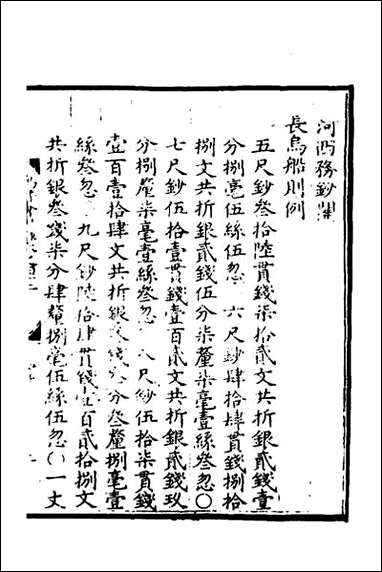 河西務鈔關
長烏船則例
五尺鈔叄拾陸貫錢柒拾貳文共折銀貳錢壹
分捌毫伍絲伍忽 六尺鈔肆拾肆貫錢捌拾
捌文共折銀貳錢伍分柒釐柒毫壹絲叄忽〇
七尺鈔伍拾壹貫錢壹百貳文共折銀貳錢玖
分捌釐柒毫壹絲叄忽 八尺鈔伍拾柒貫錢
壹百壹拾肆文共折銀 錢 分叄釐捌毫壹
絲叄忽 九尺鈔陸拾肆貫錢壹百貳拾捌文
共折銀叄錢柒分肆釐捌毫伍絲伍忽〇一丈